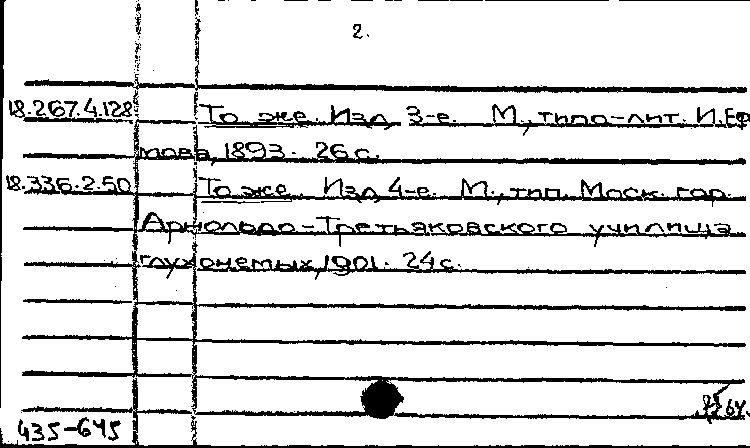 2.
18.267.4.128 То же. Изд. 3-е. М., типо-лит. И.Еф
мова, 1893. 26 с.
18.336.2.50 То же. Изд. 4-е. М., тип. Моск. гор.
Арнольдо-Третьяковского училища
глухонемых, 1901. 24 с.
64.
435-645